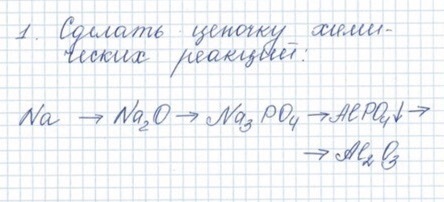 1. Сделать цепочку хими-
ческих реакций:
Na → Na₂O → Na₃PO₄ → AlPO₄↓ →
→ Al₂O₃